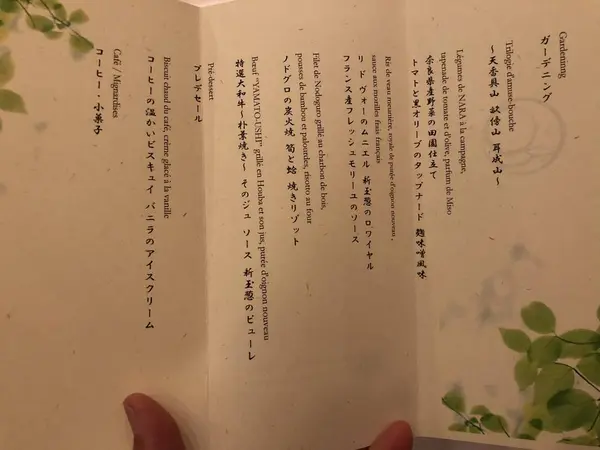 Gardening
ガーデニング
Trilogie d'amuse-bouche
～天香具山 畝傍山 耳成山～
Légumes de NARA à la campagne,
tapenade de tomate et d'olive, parfum de Miso
奈良県産野菜の田園仕立て
トマトと黒オリーブのタップナード 麹味噌風味
Ris de veau meunière, royale de purée d'oignon nouveau,
sauce aux morilles frais français
リ ド ヴォーのムニエル 新玉葱のロワイヤル
フランス産フレッシュモリーユのソース
Filet de Nodoguro grillé au charbon de bois,
pousses de bambou et palourdes, risotto au four
ノドグロの炭火焼 筍と蛤 焼きリゾット
Bœuf "YAMATO-USHI" grillé en Houba et son jus, purée d'oignon nouveau
特選大和牛～朴葉焼き～ そのジュ ソース 新玉葱のピューレ
Pré-dessert
プレデセール
Biscuit chaud du café, crème glacé à la vanille
コーヒーの温かいビスキュイ バニラのアイスクリーム
Café / Mignardises
コーヒー・小菓子